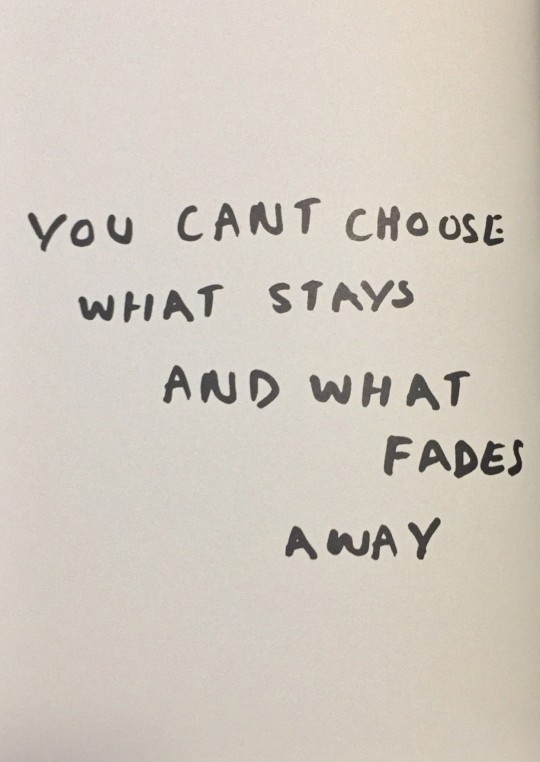 YOU CANT CHOOSE
WHAT STAYS
AND WHAT
FADES
AWAY